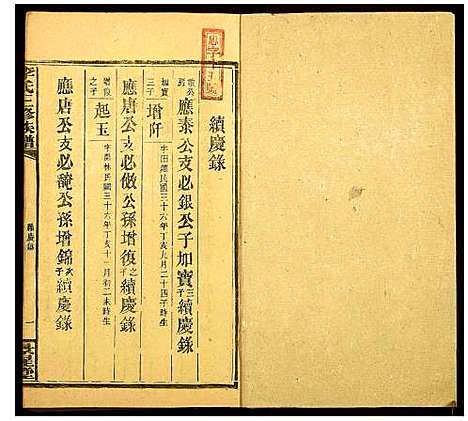 續慶錄
應泰公支必銀公子加寶三子續慶錄
增阡 字田 民國三十六年丁亥九月二十四子時生
應唐公支必傲公孫增復之子續慶錄
起玉 字 林民國三十六年丁亥十一月初二未時生
應唐公支必 公孫增錦次子續慶錄
續慶錄
一
氏三修族譜